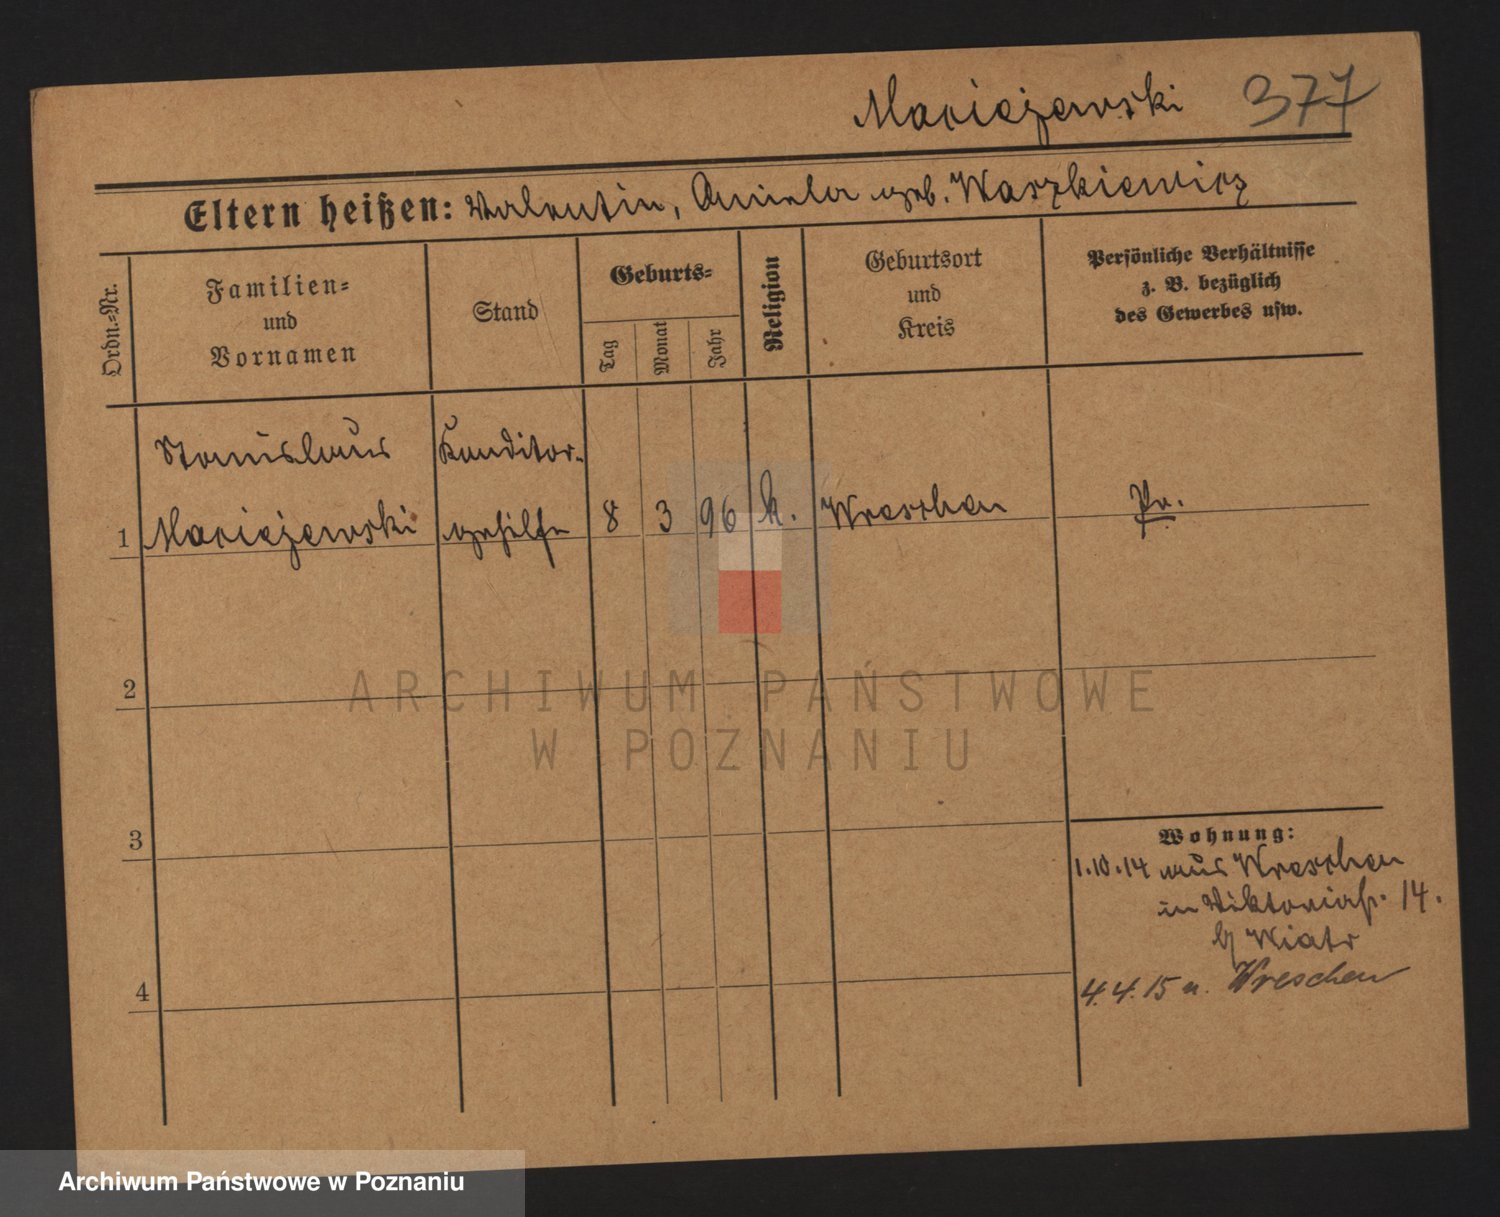 Maciejewski 377
Eltern heißen: Valentin, Aniela geb. Waszkiewicz
Ordn.-Nr.
Familien-
und
Vornamen
Stand
Geburts-
Tag
Monat
Jahr
Religion
Geburtsort
und
Kreis
Persönliche Verhältnisse
z. B. bezüglich
des Gewerbes usw.
Stanislaus Konditor-
1 Maciejewski gehilfe 8 3 96 k. Wreschen Pr.
2
ARCHIWUM PAŃSTWOWE
W POZNANIU
3
Wohnung:
1.10.14 aus Wreschen
in Viktoriastr. 14.
b/ Wiatr
4
4.4.15 n. Wreschen
Archiwum Państwowe w Poznaniu